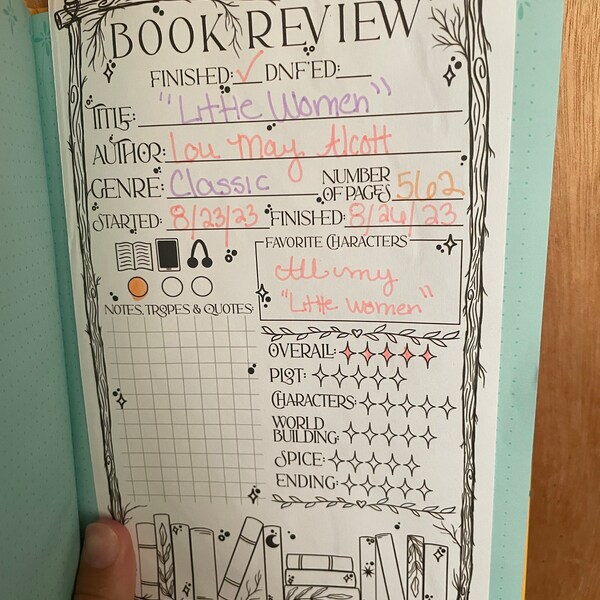 BOOK REVIEW
FINISHED: ✓ DNF'ED:
TITLE: "Little Women"
AUTHOR: Lou May Alcott
GENRE: Classic NUMBER OF PAGES 562
STARTED: 8/23/23 FINISHED: 8/26/23
FAVORITE CHARACTERS
All my
"Little women"
NOTES, TROPES & QUOTES:
OVERALL:
PLOT:
CHARACTERS:
WORLD
BUILDING:
SPICE:
ENDING: